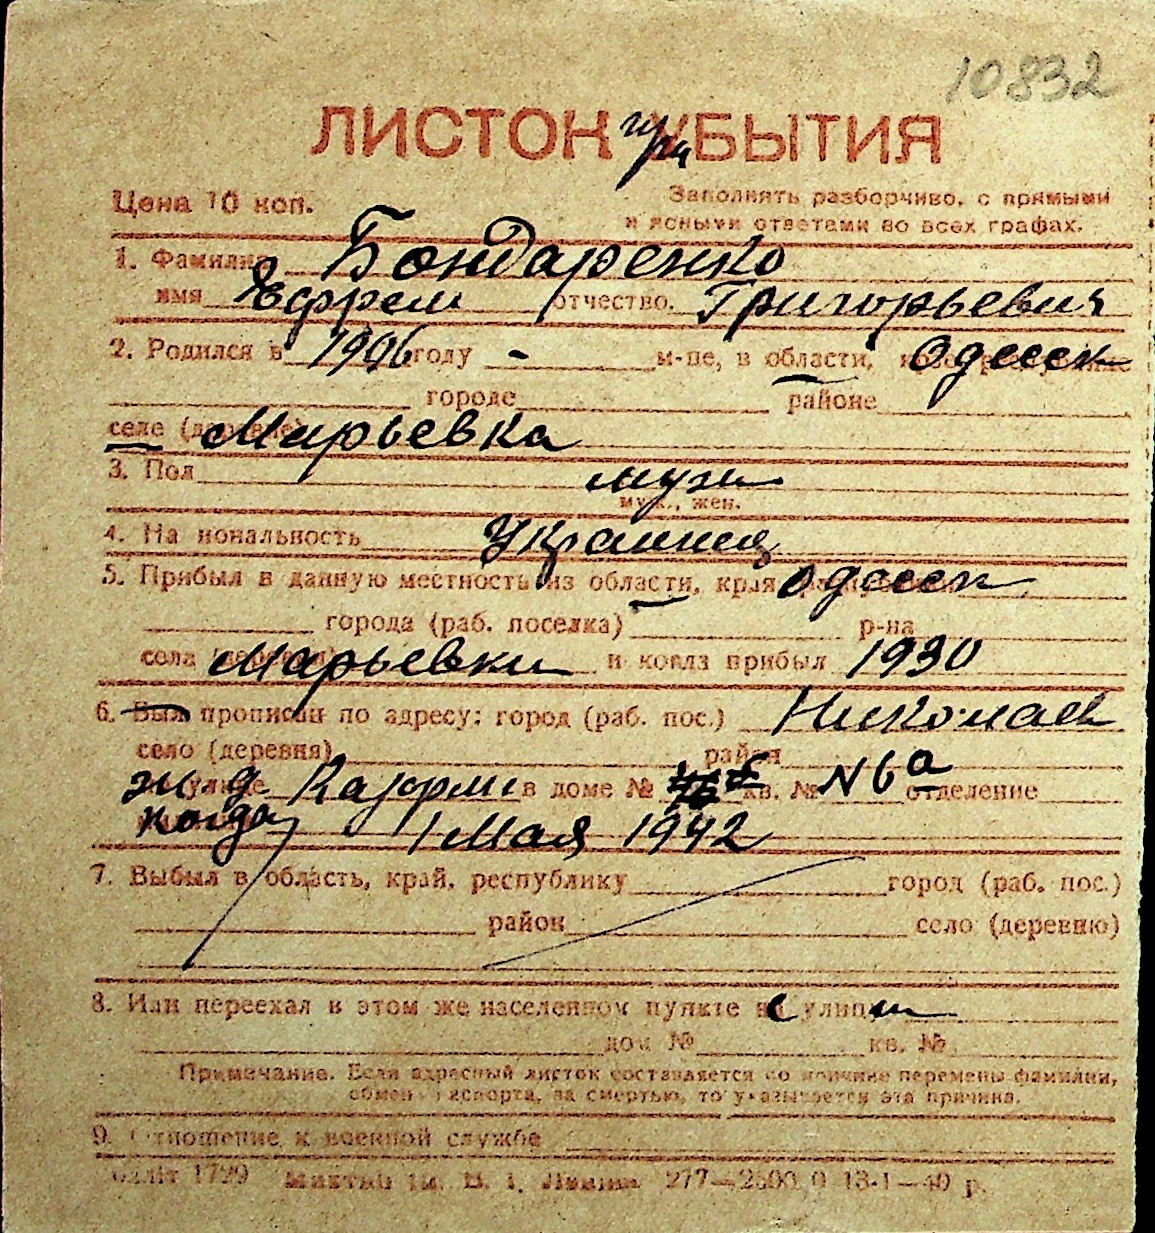 10832
ЛИСТОК УБЫТИЯ
Цена 10 коп. Заполнять разборчиво, с прямыми
и ясными ответами во всех графах.
1. Фамилия Бондаренко
имя Ефрем отчество. Григорьевич
2. Родился в 1906 году - м-це, в области, Одесск
городе районе
селе (деревне) Марьевка
3. Пол муж
муж., жен.
4. На иональность Украинец
5. Прибыл в данную местность из области, края Одесск
города (раб. поселка) р-на
села Марьевки и когда прибыл 1930
6. Был прописан по адресу: город (раб. пос.) Николаев
село (деревня) район
улице в доме № кв. № N 6а отделение
когда 1 Мая 1942
7. Выбыл в область, край, республику город (раб. пос.)
район село (деревню)
8. Или переехал в этом же населенном пункте с улицы
дом № кв. №
Примечание. Если адресный листок составляется по причине перемены фамилии,
обмена паспорта, за смертью, то указывается эта причина.
9. Отношение к военной службе
1799 В. І. Леніна 277—2500 0 13-1—40 р.